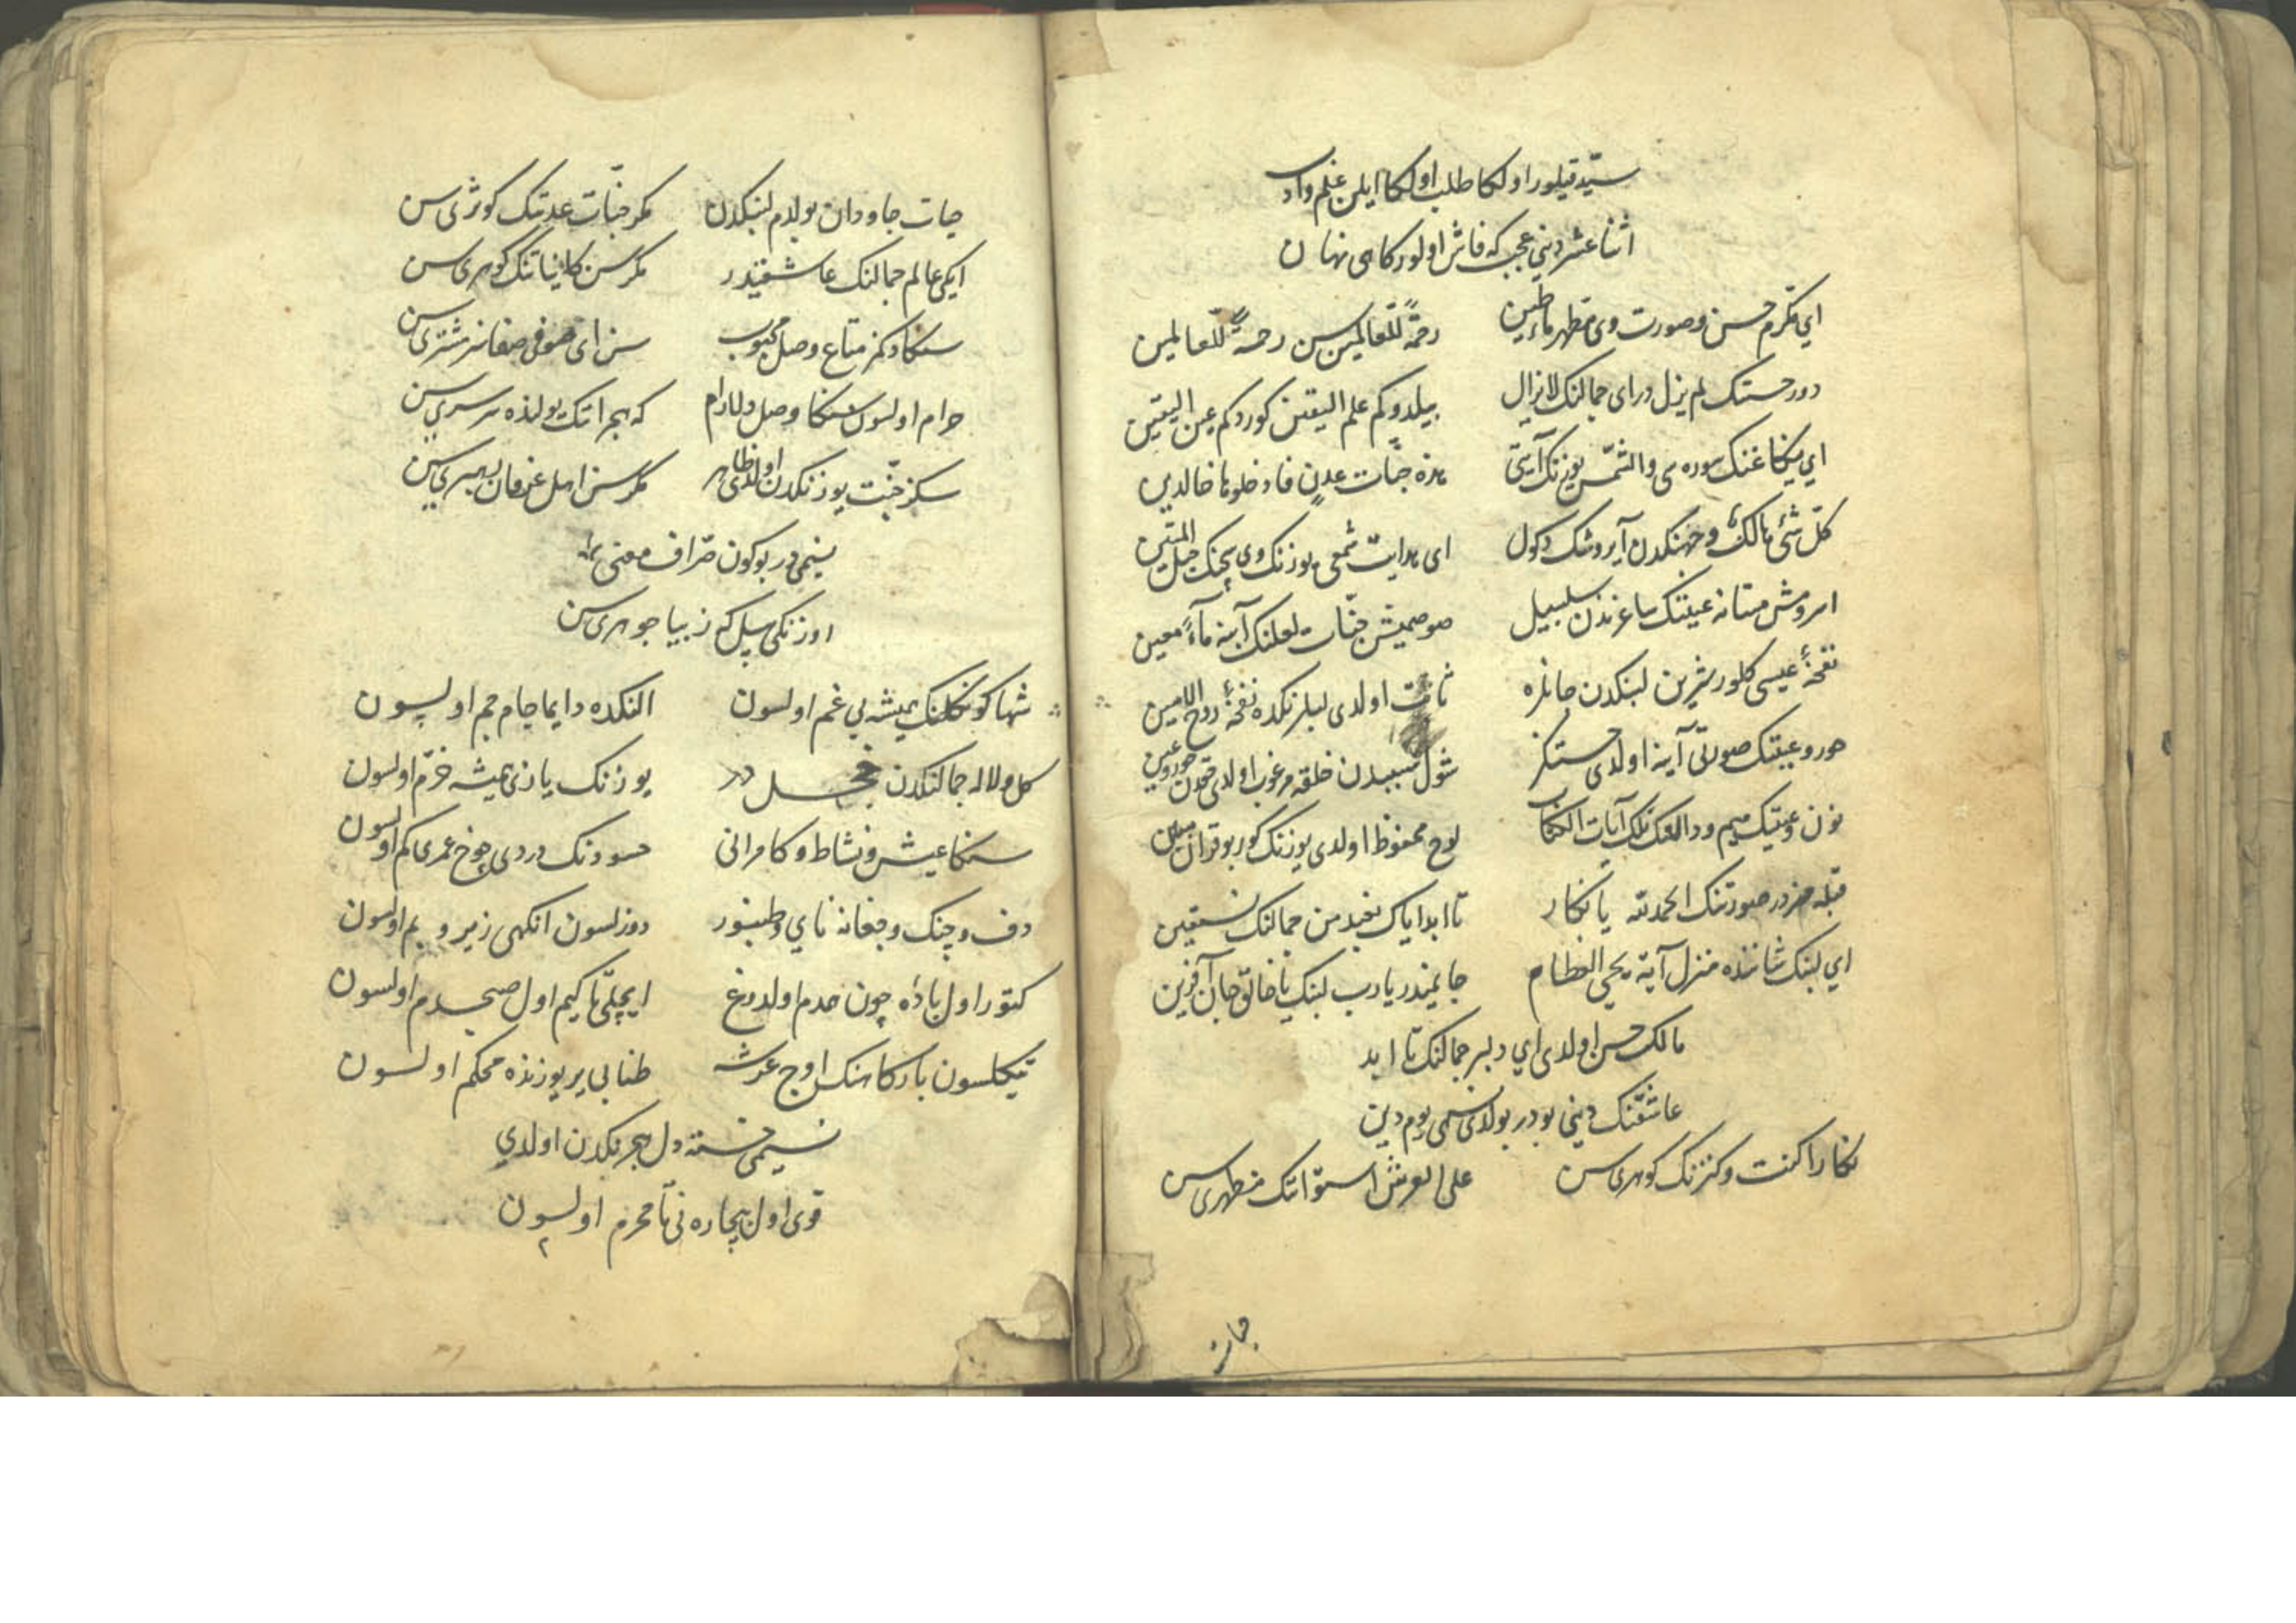 سیّد قیلور اولکا طلب اولکا ایلن علم و ادب
اثنا عشر دینی عجب که فاش اولور کاهی نهان
ای مکرم حسن و صورت وی مطهر ماء و طین رحمةً للعالمین سن رحمةً للّعالمین
دور حسنک لم یزل در ای جمالنک لا یزال بیلدوکم علم الیقین کوردکم عین الیقین
ای ینکاغنک سوره سی والشمس یوزنک آیتی هذه جنّات عدنٍ فادخلوها خالدین
کلّ شیٔ هالکٌ وجهنکدن آیروشک دکول ای هدایت شمعی یوزنک وی سجنک حبل المتین
اسرومش مستانه عینتک ساغرندن سلسبیل صوصمیش جنّات لعلنک آبنه ماءً معین
نفخهٔ عیسی کلور شرین لبنکدن جانلره ثابت اولدی لبلرنکده نفخهٔ روح الامین
حور و عینتک صورتی آینه اولدی حسنتکز شول سببدن خلقه مرغوب اولدی حور و عین
نون و عینتک میم و دالنک تلک آیات الکتاب لوح محفوظ اولدی یوزنک کور بو قرآن مبین
قبله مزدر صورتنک الحمدلله یا نکار تا ابد ایاک نعبد من جمالنک نستعین
ای لبنک شاننده منزل آیهٔ یحیی العظام جانمیدر یا رب لبنک یا خالق جان آفرین
مالک حسن اولدی ای دلبر جمالنک تا ابد
عاشقنک دینی بودر بولدی نسیمی یوم دین
نکارا کنت و کنزنک کوهری سن علی العرش استوانک مظهری سن
جات
حیات جاودان بولدم لبنکدن مکر جنّات عدنتک کوثری سن
ایکی عالم جمالنک عاشقیدر مکر سن کایناتنک کوهری سن
سنکا دکمز متاع وصل محبوب سن ای صوفی صفا نر مشتری سن
حرام اولسون سنکا وصل دلارام که هجرانتک یولنده سرسری سن
سکز جنّت یوزنکدن اولدی ظاهر مکر سن اهل عرفان رهبری سن
نسیمی در بوکون صرّاف معنی
اوزنکی بیل که زیبا جوهری سن
شها کونکلنک همیشه بی غم اولسون النکده دایما جام جم اولسون
کل و لاله جمالنکدن خجل در یوزنک یازی همیشه خرّم اولسون
سنکا عیش و نشاط و کامرانی حسودنک دردی چوخ عمری کم اولسون
دف و چنک و چغانه نای و طنبور دوزلسون انکهی زیر و بم اولسون
کتور اول باده چون همدم اولدرغ ایچلّی تا کیم اول صبحدم اولسون
تیکلسون بارکاهنک اوج عرشه طنابی یر یوزنده محکم اولسون
نسیمی خسته دل هجرنکدن اولدی
قوی اول بیچاره نی تا محرم اولسون